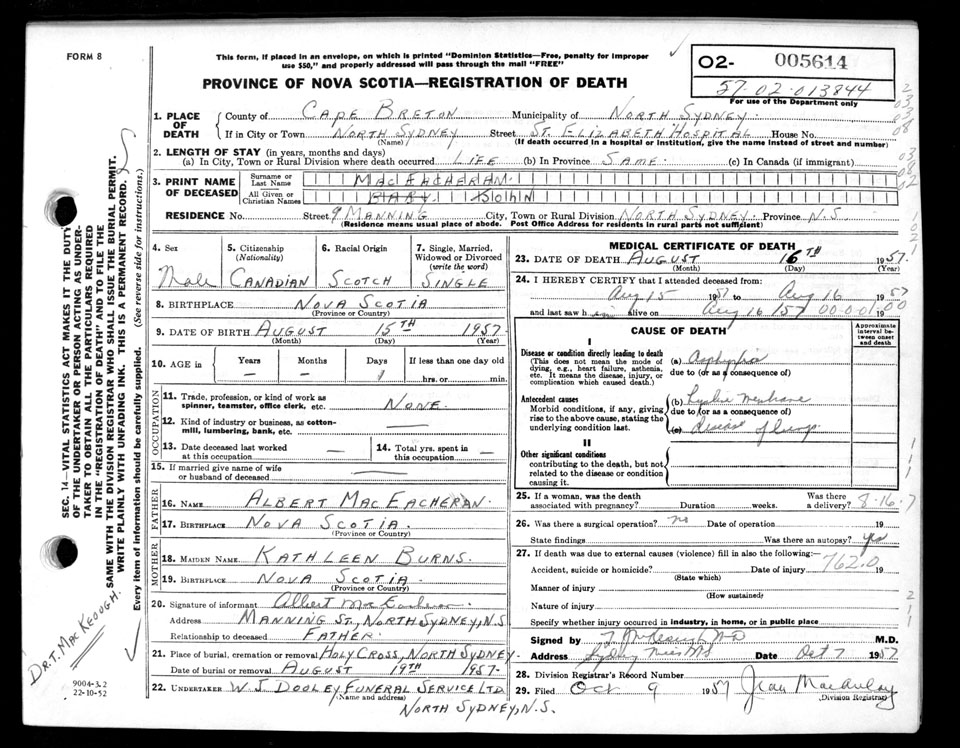 FORM 8
This form, if placed in an envelope, on which is printed "Dominion Statistics—Free, penalty for improper
use $50," and properly addressed will pass through the mail "FREE"
PROVINCE OF NOVA SCOTIA—REGISTRATION OF DEATH
O2- 005614
57-02-013844
For use of the Department only
1. PLACE OF DEATH
County of CAPE BRETON Municipality of NORTH SYDNEY.
If in City or Town NORTH SYDNEY Street ST. ELIZABETH HOSPITAL House No.
(Name) (If death occurred in a hospital or institution, give the name instead of street and number)
2. LENGTH OF STAY (in years, months and days)
(a) In City, Town or Rural Division where death occurred LIFE (b) In Province SAME. (c) In Canada (if immigrant)
3. PRINT NAME OF DECEASED
Surname or Last Name MACEACHERAN.
All Given or Christian Names BABY JOHN
RESIDENCE No. Street 9 MANNING City, Town or Rural Division NORTH SYDNEY. Province N.S.
(Residence means usual place of abode. Post Office Address for residents in rural parts not sufficient)
4. Sex Male
5. Citizenship (Nationality) CANADIAN
6. Racial Origin SCOTCH
7. Single, Married, Widowed or Divorced (write the word) SINGLE
8. BIRTHPLACE NOVA SCOTIA
(Province or Country)
9. DATE OF BIRTH AUGUST 15TH 1957.
(Month) (Day) (Year)
10. AGE in Years Months Days If less than one day old
— — 1 hrs. or min.
OCCUPATION
11. Trade, profession, or kind of work as spinner, teamster, office clerk, etc. NONE.
12. Kind of industry or business, as cotton-mill, lumbering, bank, etc. —
13. Date deceased last worked at this occupation —
14. Total yrs. spent in this occupation —
15. If married give name of wife or husband of deceased —
FATHER
16. NAME ALBERT MACEACHERAN.
17. BIRTHPLACE NOVA SCOTIA.
(Province or Country)
MOTHER
18. MAIDEN NAME KATHLEEN BURNS.
19. BIRTHPLACE NOVA SCOTIA.
(Province or Country)
20. Signature of informant Albert MacEacheran
Address MANNING ST., NORTH SYDNEY, N.S.
Relationship to deceased FATHER.
21. Place of burial, cremation or removal HOLY CROSS, NORTH SYDNEY.
Date of burial or removal AUGUST 19TH 1957.
22. UNDERTAKER W. J. DOOLEY FUNERAL SERVICE LTD
(Name and address)
NORTH SYDNEY, N.S.
MEDICAL CERTIFICATE OF DEATH
23. DATE OF DEATH AUGUST 16TH 1957.
(Month) (Day) (Year)
24. I HEREBY CERTIFY that I attended deceased from
Aug 15 1957 to Aug 16 1957
and last saw h alive on Aug 16 157 00.0.01.00
CAUSE OF DEATH
Approximate interval between onset and death
I
Disease or condition directly leading to death
(This does not mean the mode of dying, e.g., heart failure, asthenia, etc. It means the disease, injury, or complication which caused death.)
(a) Asphyxia
due to (or as a consequence of)
Antecedent causes
Morbid conditions, if any, giving rise to the above cause, stating the underlying condition last.
(b) Hyaline Membrane
due to (or as a consequence of)
(c) Disease of lungs
II
Other significant conditions
contributing to the death, but not related to the disease or condition causing it.
25. If a woman, was the death associated with pregnancy? Duration weeks. Was there a delivery? 8-16-7
26. Was there a surgical operation? no Date of operation 19
State findings Was there an autopsy? yes
27. If death was due to external causes (violence) fill in also the following:
Accident, suicide or homicide? Date of injury 19
(State which)
762.0
Manner of injury
(How sustained)
Nature of injury
Specify whether injury occurred in industry, in home, or in public place
Signed by M.D.
Address Sydney Mines NS Date Oct 7 1957
28. Division Registrar's Record Number
29. Filed Oct 9 1957 Jean MacAulay
(Division Registrar)
SEC. 14—VITAL STATISTICS ACT MAKES IT THE DUTY
OF THE UNDERTAKER OR PERSON ACTING AS UNDER-
TAKER TO OBTAIN ALL THE PARTICULARS REQUIRED
IN THE "REGISTRATION OF DEATH" AND TO FILE THE
SAME WITH THE DIVISION REGISTRAR WHO SHALL ISSUE THE BURIAL PERMIT.
WRITE PLAINLY WITH UNFADING INK. THIS IS A PERMANENT RECORD.
Every item of information should be carefully supplied. (See reverse side for instructions.)
DR. T. MACKEOUGH.
9004-3.2
22-10-52